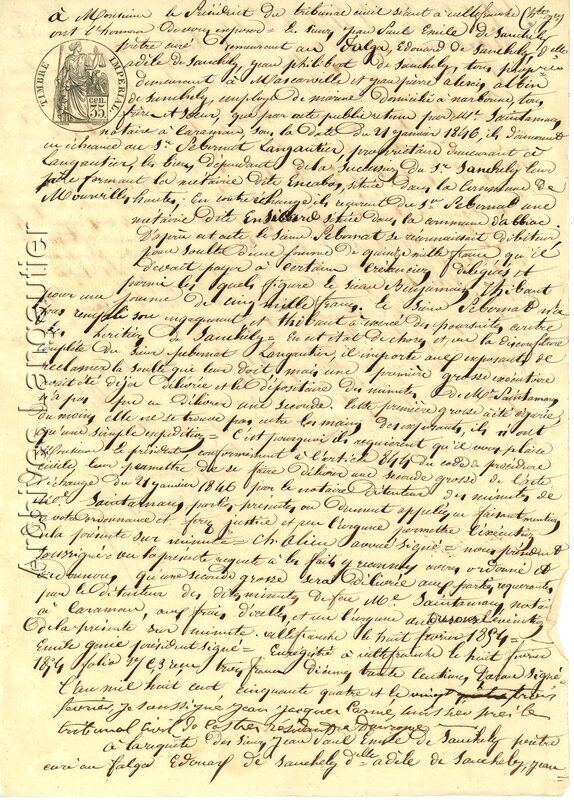 à Monsieur le Président du tribunal civil séant à villefranche
ont l'honneur de vous exposer = les sieurs Jean Paul Emile de Sanchely
prêtre curé demeurant au Falga, Edouard de Sanchely, d'elle
adèle de Sanchely Jean philibert de Sanchely, tous
demeurant à Mascarville et Jean pierre alexis albin
de Sanchely, employé de marine domicilié à narbonne, tous
frères et sœur, que par acte public retenu par Me Saintamans
notaire à Caraman, sous la date du 21 janvier 1846, ils donnèrent
en échange au Sr Pebernat Langautier, propriétaire demeurant à
Langautier, les biens dépendant de la succession du Sr Sanchely leur
père formant la métairie dite Encabos, située dans la Commune de
Mourvilles hautes. En contre échange ils reçurent du Sr Pebernat une
métairie dite située dans la commune d'albiac
D'après cet acte le sieur Pebernat se reconnaissait débiteur
pour soulte d'une somme de quinze mille francs qu'il
devait payer à certains créanciers délégués et
parmi les quels figure le sieur Benjamin Thibaut
pour une somme de cinq mille francs. Le sieur Pebernat n'a
pas rempli son engagement et Thibaut a exercé des poursuites contre
les héritiers de Sanchely = En cet état de choses et vu la déconfiture
complète du sieur pebernat Langautier, il importe aux exposants de
réclamer la soulte que leur doit mais une première grosse exécutoire
avait été déjà délivrée et le dépositaire des minutes de Me Saintamans
n'a pas pu en délivrer une seconde. Cette première grosse a été égarée
du moins elle ne se trouve pas entre les mains des exposants, ils n'ont
qu'une simple expédition = C'est pourquoi ils requièrent qu'il vous plaise
Monsieur le président conformément à l'article 844 du code de procédure
civile, leur permettre de se faire délivrer une seconde grosse de l'acte
d'échange du 21 janvier 1846 par le notaire détenteur des minutes de
Me Saintamans parties présentes ou dument appelées en faisant mention
de votre ordonnance et ferez justice et vu l'urgence permettre l'exécution
de la présente sur minute = avoué signé = nous président
soussigné = vu la présente requête à les faits y énoncés avons ordonné et
ordonnons qu'une seconde grosse sera délivrée aux parties requérantes
par le détenteur des minutes de feu Me Saintamans notaire
à Caraman, aux frais d'icelles, et vu l'urgence exécution
de la présente sur minute. villefranche le huit février 1854 =
Emile président signé = Enregistré à villefranche le huit février
1854 folio trois francs Dixmes trente centimes signé
L'an mil huit cent cinquante quatre et le
février, je soussigné Jean Jacques huissier près le
tribunal civil de Castres résidant à
à la requête des sieurs Jean Paul Emile de Sanchely prêtre
curé au falga Edouard de Sanchely d'lle adèle de Sanchely Jean
TIMBRE IMPERIAL
35 cen.
Archives Langautier